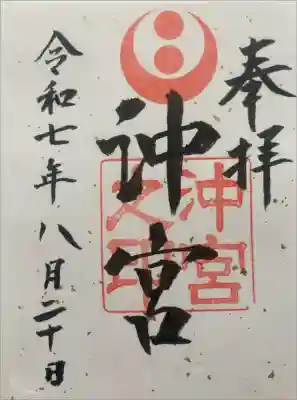 奉拝
沖宮
沖宮之璽
令和七年八月二十日